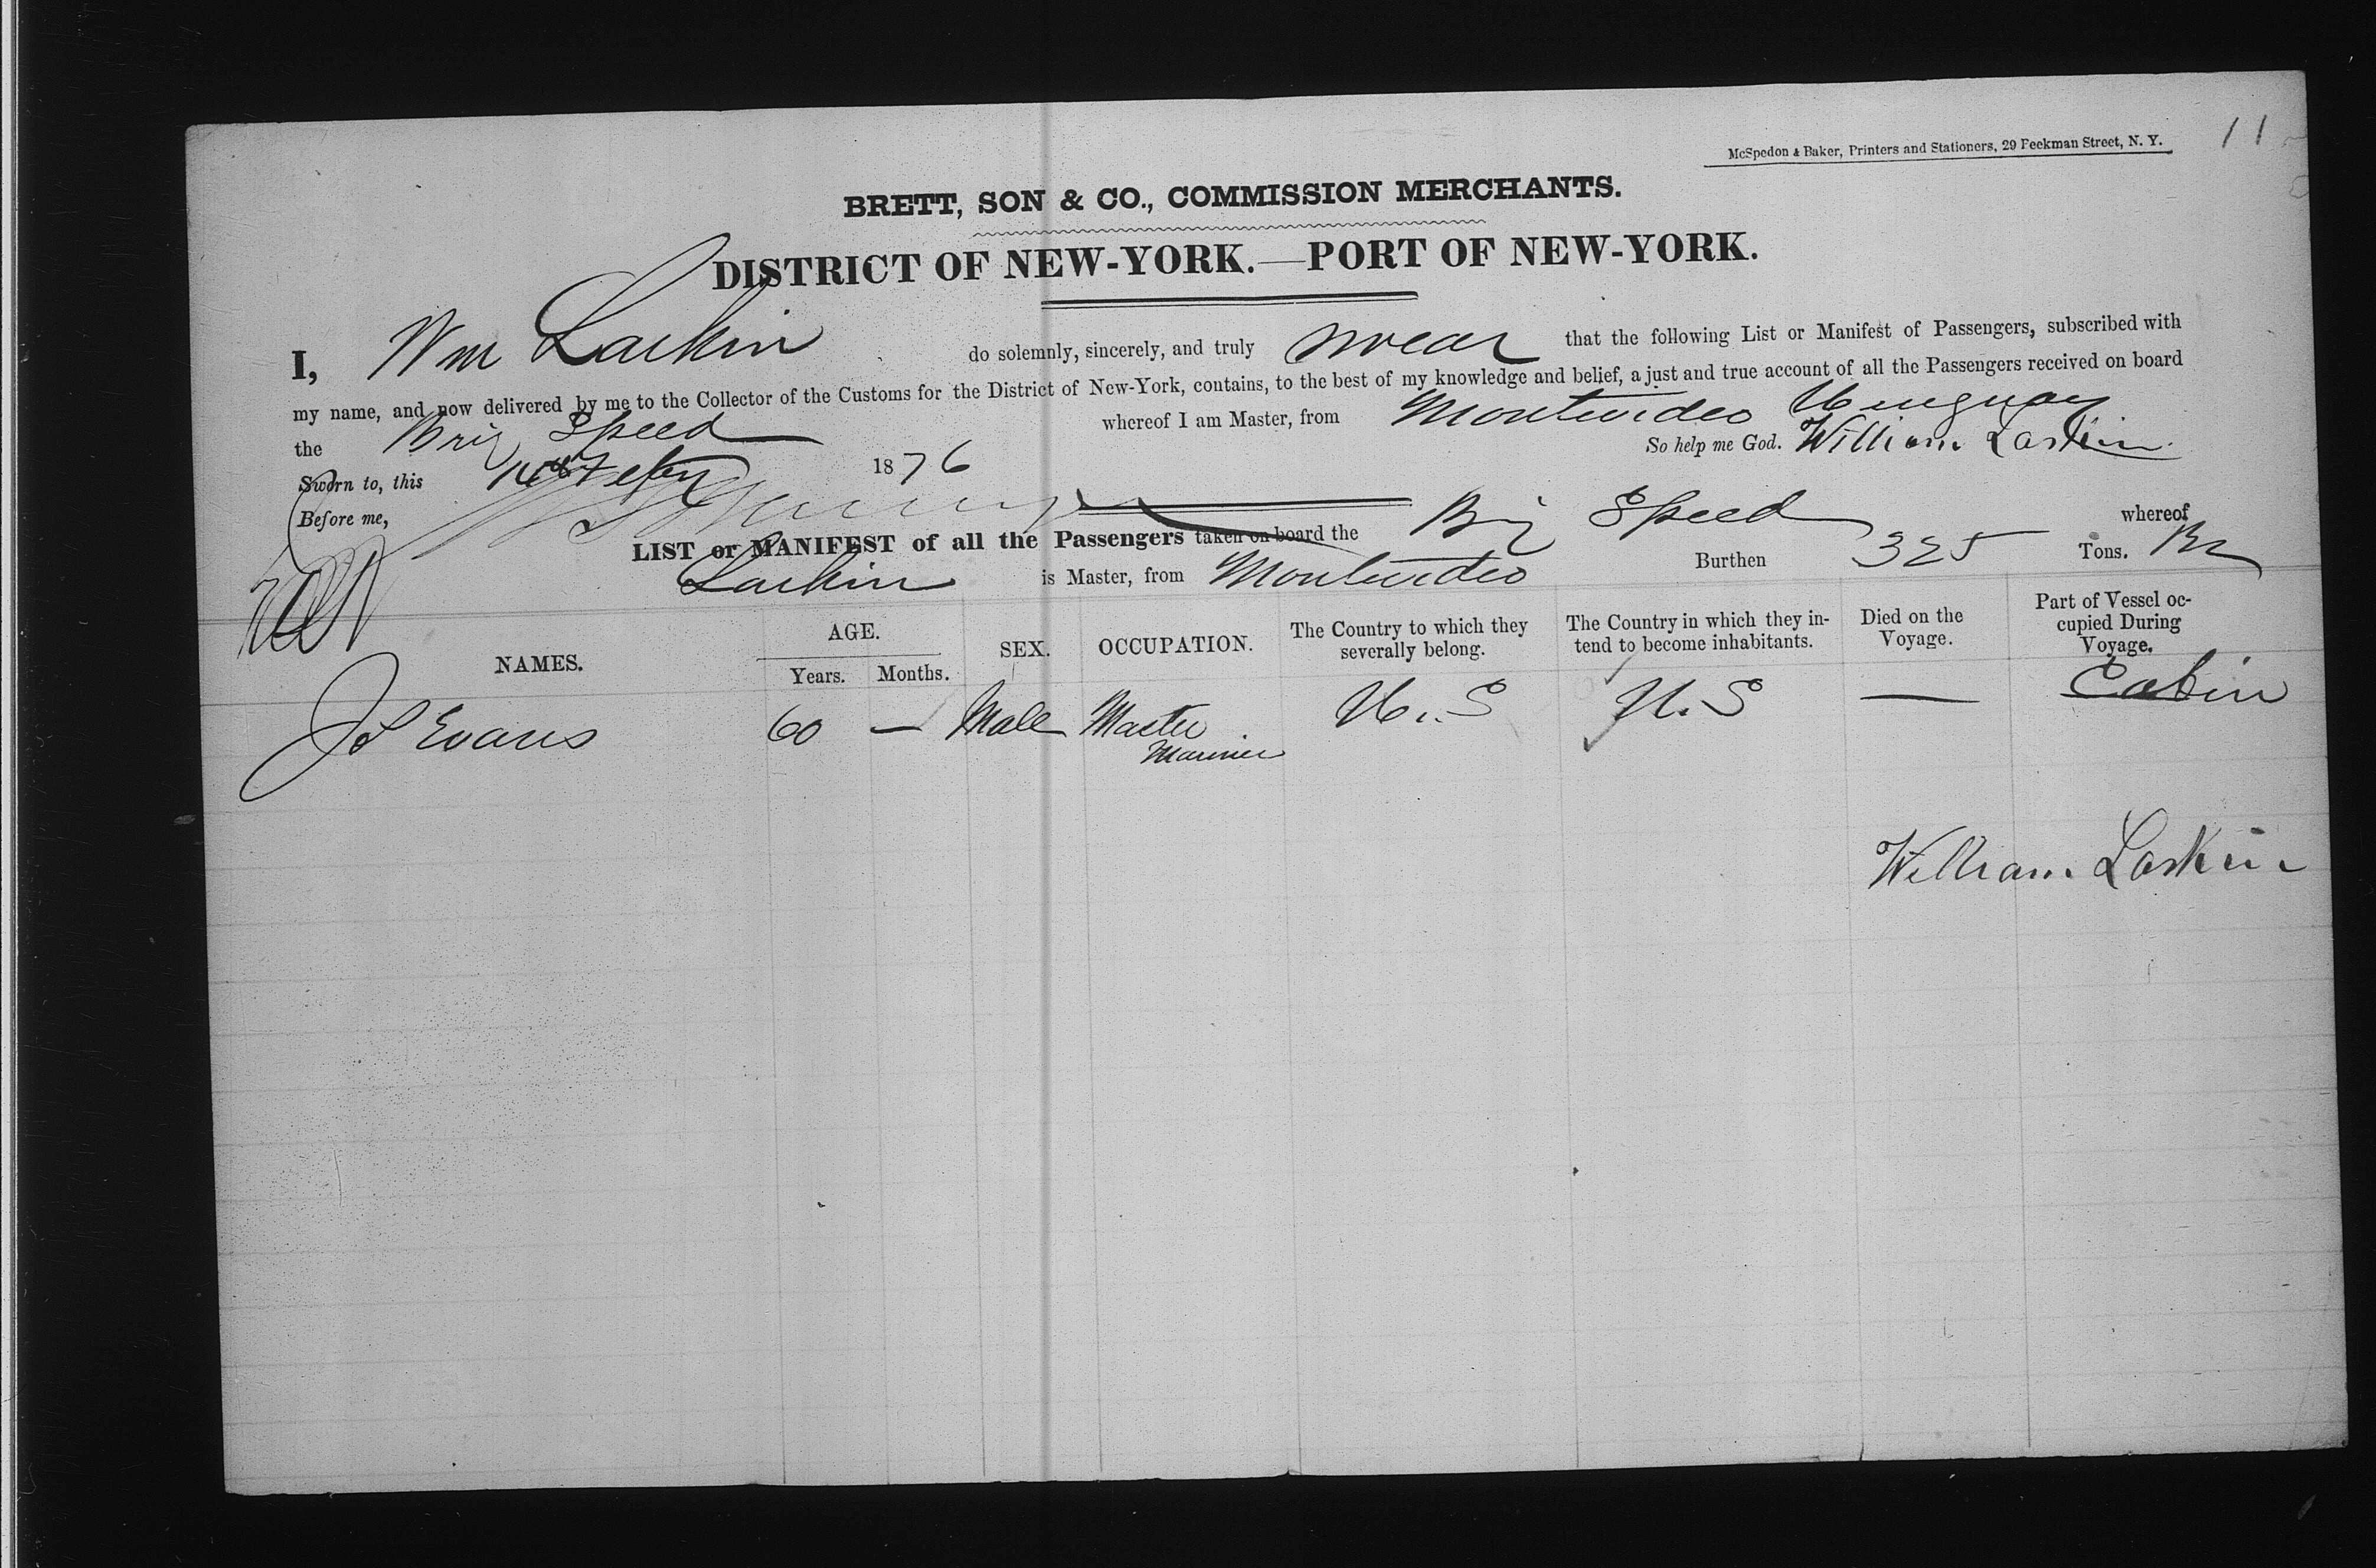 McSpedon & Baker, Printers and Stationers, 29 Beekman Street, N. Y.
11
BRETT, SON & CO., COMMISSION MERCHANTS.
DISTRICT OF NEW-YORK.—PORT OF NEW-YORK.
I, Wm Larkin do solemnly, sincerely, and truly swear that the following List or Manifest of Passengers, subscribed with
my name, and now delivered by me to the Collector of the Customs for the District of New-York, contains, to the best of my knowledge and belief, a just and true account of all the Passengers received on board
the Brig Speed whereof I am Master, from Montevideo Uruguay
Sworn to, this 1876 So help me God. William Larkin
Before me,
LIST or MANIFEST of all the Passengers taken on board the Brig Speed whereof
Larkin is Master, from Montevideo Burthen 325 Tons. Br
NAMES. AGE. Years. Months. SEX. OCCUPATION. The Country to which they severally belong. The Country in which they intend to become inhabitants. Died on the Voyage. Part of Vessel occupied During Voyage.
Evans 60 — Male Master Mariner U.S U.S — Cabin
William Larkin